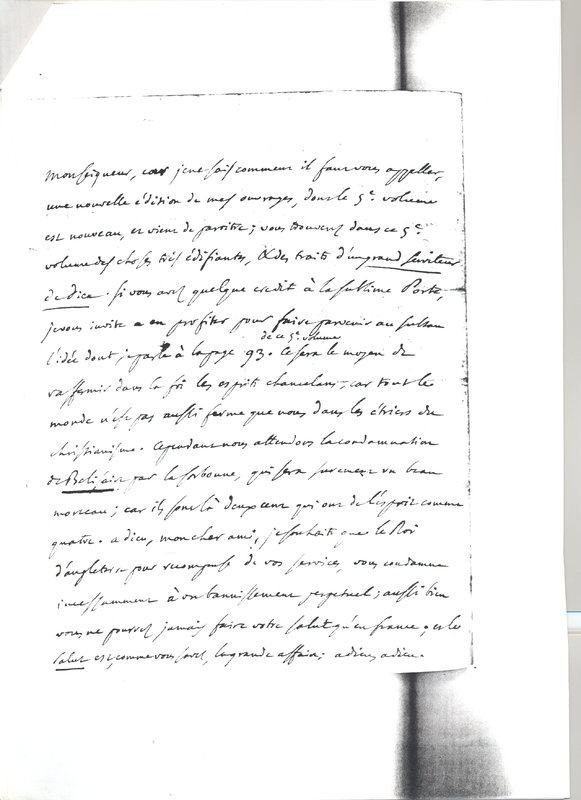 Monseigneur, car je ne sais comment il faut vous appeller,
une nouvelle édition de mes ouvrages, dont le 5e. volume
est nouveau, et vient de paroître; vous trouverez dans ce 5e.
volume des choses très édifiantes, & des traits d'un grand serviteur
de dieu. si vous avez quelque credit à la sublime Porte,
je vous invite a en profiter pour faire parvenir au sultan
de ce 5e. volume
l'idée dont je parle à la page 93. Ce sera le moyen de
raffermir dans la foi les esprits chancelans, car tout le
monde n'est pas aussi ferme que vous dans les étriers du
christianisme. Cependant nous attendons la condamnation
de Belisaire par la sorbonne, qui sera surement un beau
morceau; car ils sont là deux cent qui ont de l'esprit comme
quatre. adieu, mon cher ami, je souhaite que le Roi
d'angleterre pour recompense de vos services, vous condamne
incessamment à un bannissement perpetuel; aussi bien
vous ne pourrez jamais faire votre salut qu'en france, et le
salut est, comme vous savez, la grande affaire; adieu, adieu.